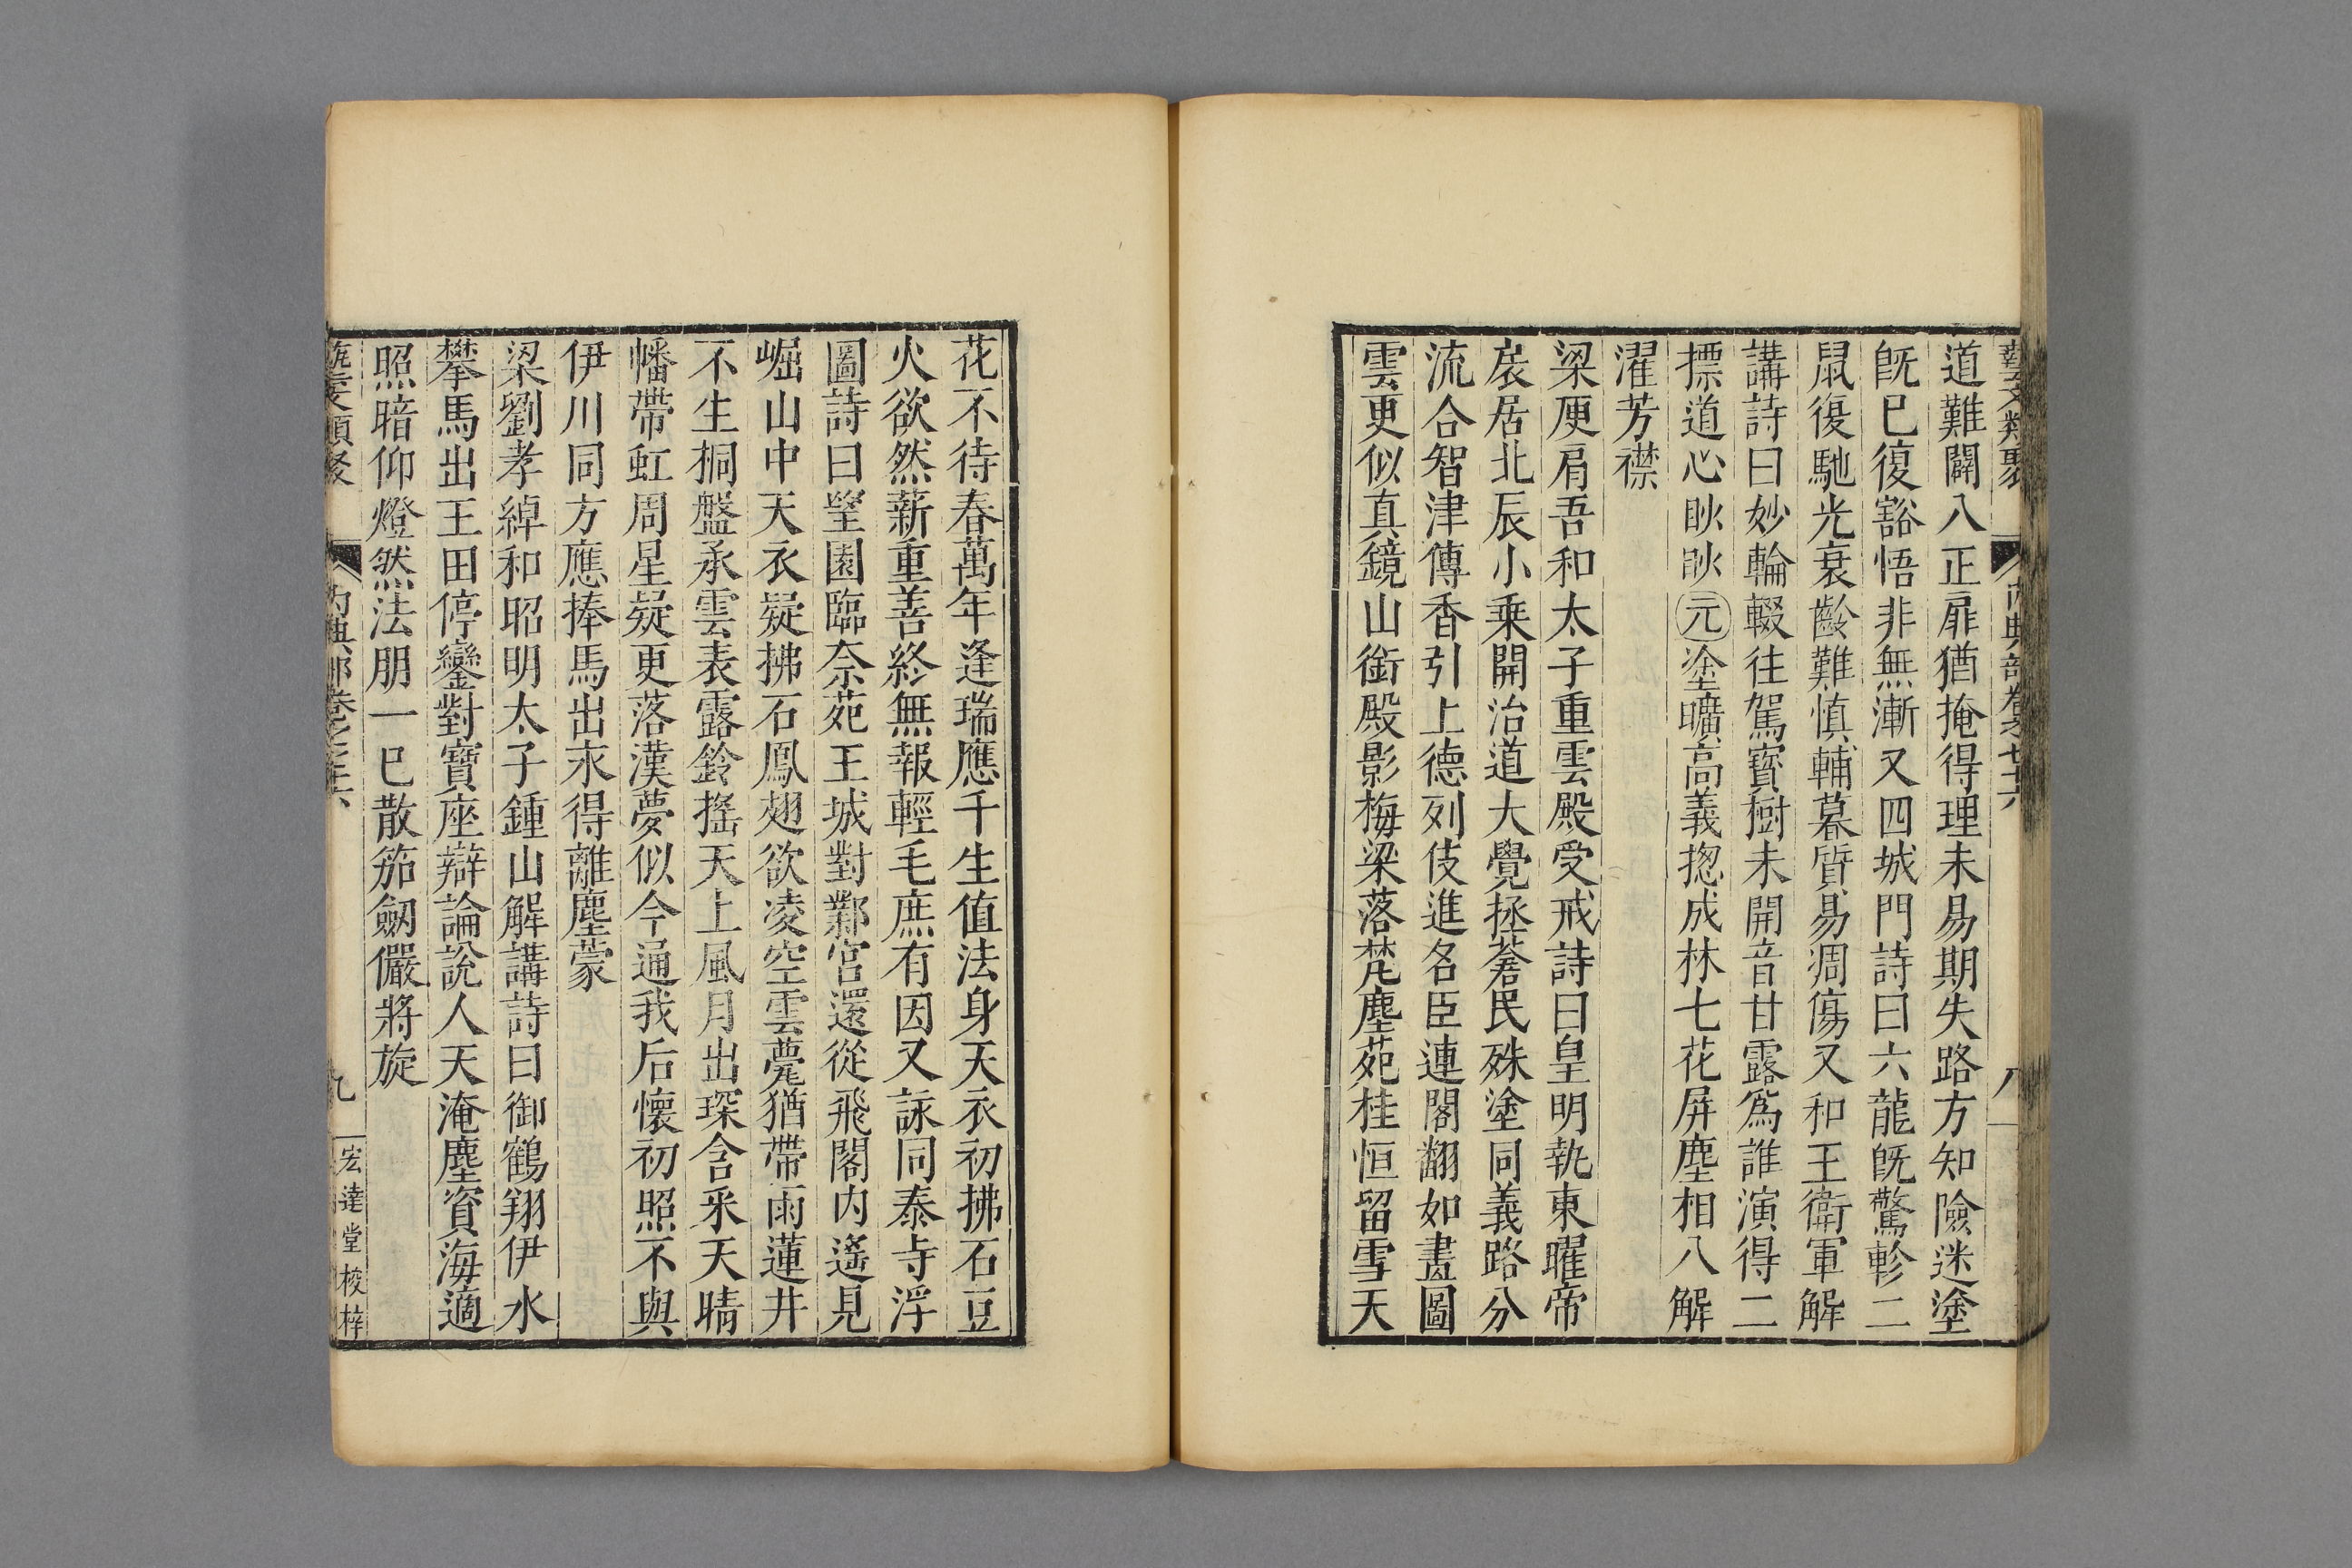 藝文類聚 內典部卷之七十六 八
道難闢八正扉猶掩得理未易期失路方知險迷塗
旣巳復豁悟非無漸又四城門詩曰六龍旣驚軫二
鼠復馳光衰齡難慎輔暮質易凋傷又和王衛軍解
講詩曰妙輪輟往駕寳樹未開音甘露爲誰演得二
摽道心眇眇元塗曠高義揔成林七花屏塵相八解
濯芳襟
梁庾肩吾和太子重雲殿受戒詩曰皇明執東曜帝
扆居北辰小乗開治道大覺拯蒼民殊塗同義路分
流合智津傳香引上德列伎進名臣連閣翻如畫圖
雲更似真鏡山銜殿影梅梁落梵塵苑桂恒留雪天
花不待春萬年逢瑞應千生值法身天衣初拂石豆
火欲然薪重善終無報輕毛庶有因又詠同泰寺浮
圖詩曰望園臨奈苑王城對鄴宮還從飛閣内遙見
崛山中天衣疑拂石鳳翅欲凌空雲甍猶帶雨蓮井
不生桐盤承雲表露鈴搖天上風月出琛含釆天晴
幡帶虹周星疑更落漢夢似今通我后懷初照不與
伊川同方應捧馬出永得離塵蒙
梁劉孝綽和昭明太子鍾山解講詩曰御鶴翔伊水
攀馬出王田停鑾對寶座辯論說人天淹塵資海適
照暗仰燈然法朋一巳散笳劔儼將旋
藝文類聚 內典部卷之七十六 九 宏達堂校梓